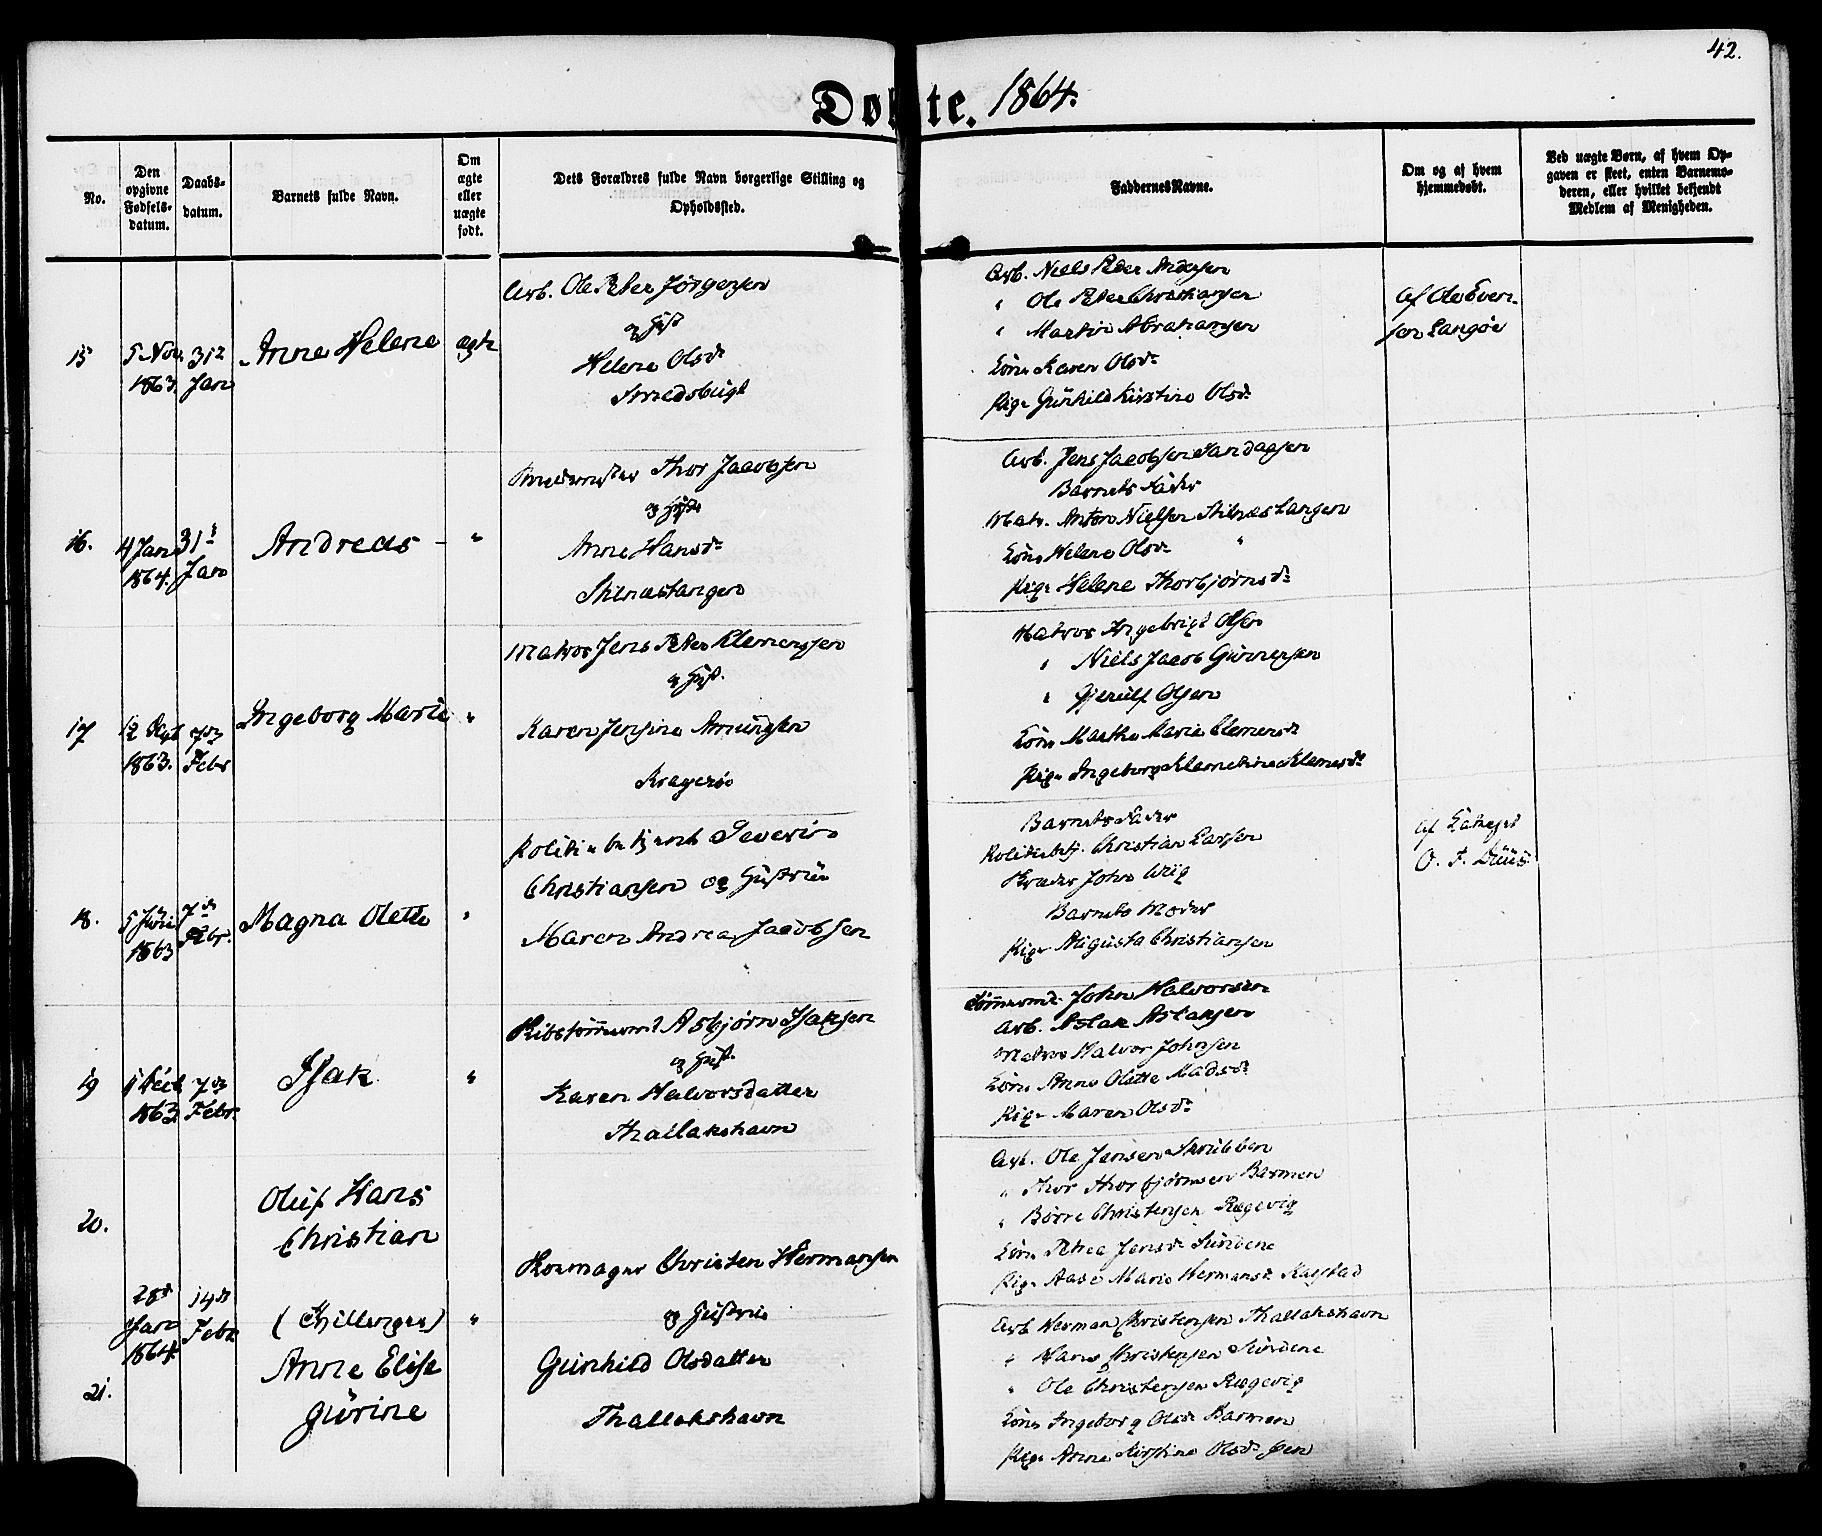 42.
Døbte. 1864.
No.
Den opgivne Fødselsdatum.
Daabsdatum.
Barnets fulde Navn.
Om ægte eller uægte født.
Dets Forældres fulde Navn borgerlige Stilling og Opholdssted.
Faddernes Navne.
Om og af hvem hjemmedøbt.
Ved uægte Børn, af hvem Opgaven er skeet, enten Barnemoderen, eller hvilket bekjendt Medlem af Menigheden.
15
5 Nov 1863.
31 Jan
Anne Helene
ægte
Arb. Ole Peter Jörgensen
og Hust
Helene Olsd.
Smedsbugt
Arb. Niels Peder Andersen
" Ole Peter Christiansen
" Martin Abrahamsen
Kone Karen Olsd.
Pige Günhild Kirstine Olsd.
Af Ole Even-
sen Langöe
16.
4 Jan 1864.
31 Jan
Andreas
"
Thor Jacobsen
og Hust
Anne Hansd.
Stilnæstangen
Arb. Jens Jacobsen
Barnets Fader
Matr. Anton Nielsen Stilnæstangen
Kone Helene Olsd. "
Pige Helene Thorbjörnsd.
17
12 Sept 1863.
7de Febr
Ingeborg Marie
"
Matros Jens Peter Clemensen
og Hust.
Karen Jensine
Kragerö
Matros Ingebrigt Olsen
" Niels Jacob Gunnersen
" Gjerulf Olsen
Kone Marthe Marie Clemensd.
Pige Ingeborg Klementine Klemensd.
18.
5 Juni 1863
7de Febr.
Magna Olette
"
Politibetjent Severin
Christiansen og Hustrüe
Maren Andrea Jacobsen
Barnets Fader
Politibetj. Christian Larsen
John Wiig
Barnets Moder
Pige Augusta Christiansen
Af
O. F. Düüs.
19
1863
7de Febr.
Isak
"
Asbjörn Isaksen
og Hust.
Karen Halvorsdatter
Thallakshavn
Tömmermd. John Halvorsen
Arb. Aslak Aslaksen
Matros Halvor Johnsen
Kone Anne Olette Madsd.
Pige Maren Olsd.
20.
Oluf Hans
Christian
28de Jan 1864.
14de Febr
(Tvillinger)
"
Anne Elise
Gürine
21.
Christen Hermansen
og Hustrüe
Gunhild Olsdatter
Thallakshavn
Arb. Ole Jensen Skrubben
" Thor Thorbjörnsen Barmen
" Börre Christensen Rægevig
Kone Petrea Jensd. Sundene
Pige Aase Marie Hermansd.
Arb Herman Christensen Thallakshavn
" Hans Christensen Sundene
" Ole Christensen Rægevig
Kone Ingeborg Olsd. Barmen
Pige Anne Kirstine Olsd.